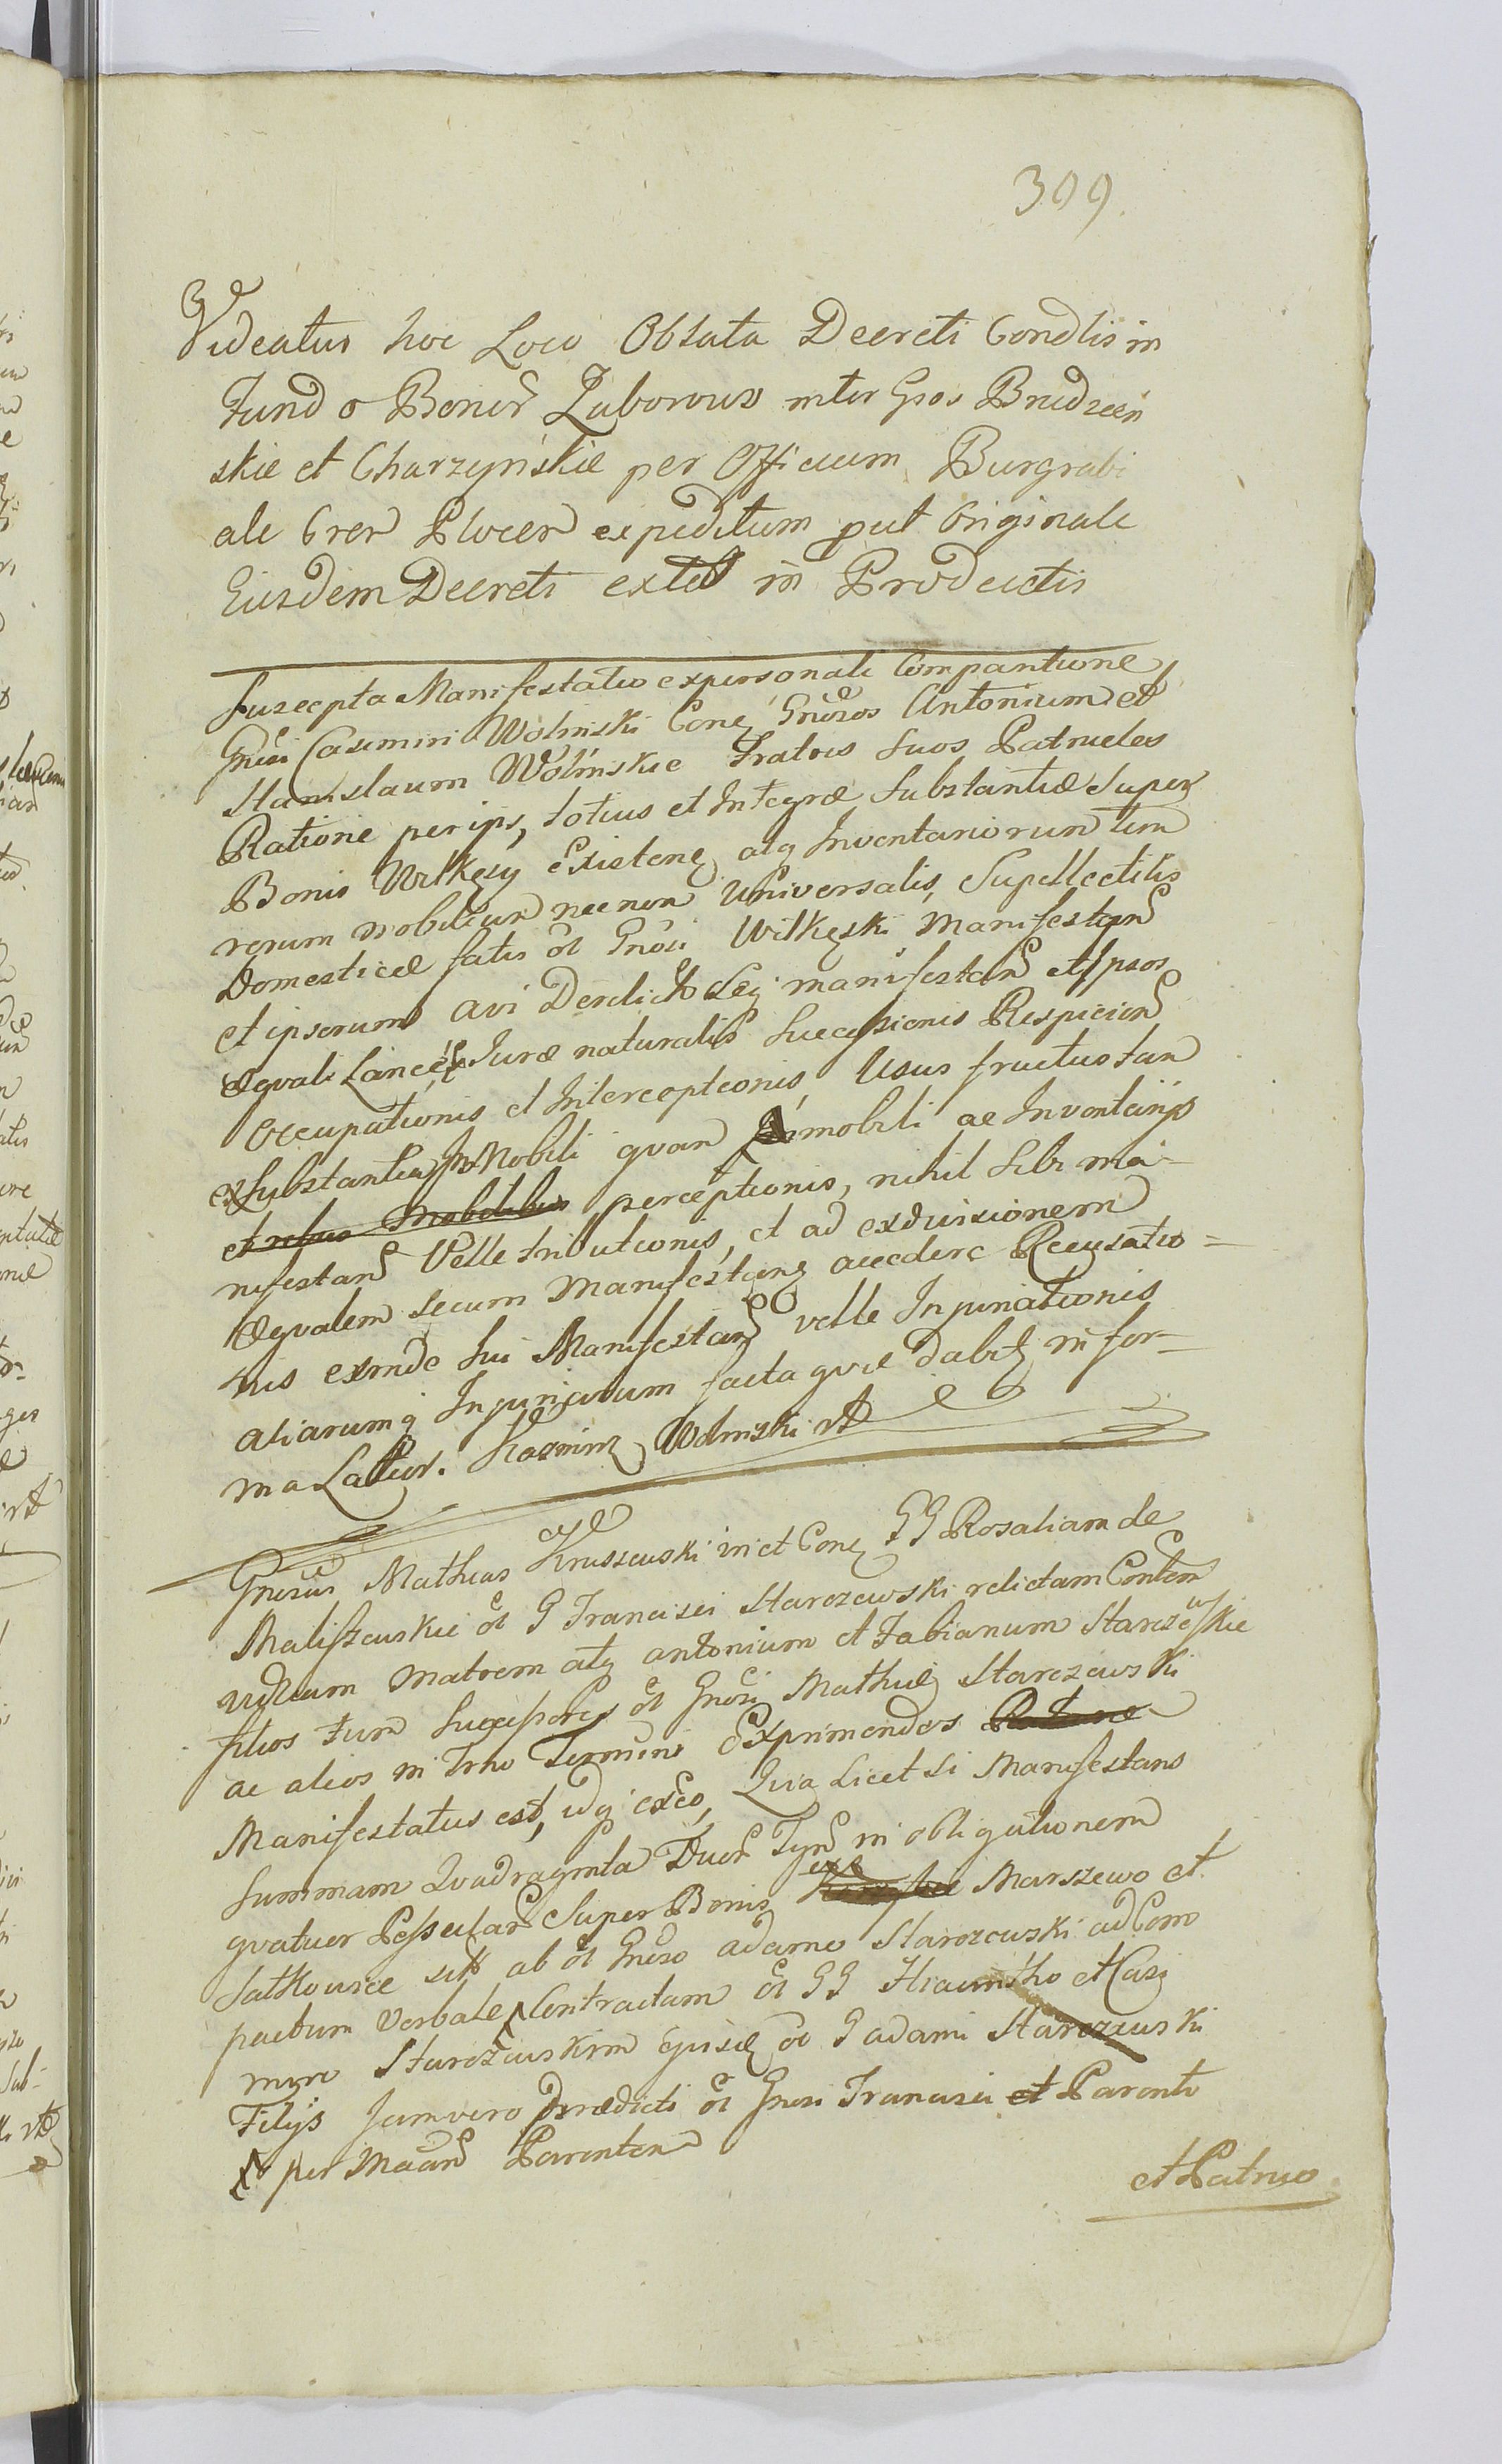 309.
Videatur hoc Loco Oblata Decreti Condlis in
Fundo Bonor Zaborowo inter Gsos Brudzeń
skie et Charzyńskie per Officium Burgrabi
ale Cren Plocen expeditum put Originale
Eiusdem Decreti extat in Productis
Suscepta Manifestatio ex personali Comparitione
Gnosi Casimiri Woliński Cone Gnosos Antonium et
Stanislaum Wolińskie Fratres suos Patrueles
Ratione per ips, totius et Integræ Substantiæ Super
Bonis Wilkęsy Existenę atq Inventariorum tum
rerum mobilium necnon Universalis Supellectilis
Domesticæ fatis ol Gnosi Wilkęski Manifestan
et ipsorum avi Derelict manifestan et Ipsos
æquali Lance Jure naturalis Successionis Respicien
Occupationis et Interceptionis, Usus fructus tam
ex Substantia Mobili quam Immobili ac Inventarijs
et rebus Mobilibus perceptionis, nihil Sibi ma-
nifestan Velle tributionis, et ad exdivisionem
æqualem secum Manifestanę accedere Recusatio=
nis exinde sui Manifestan velle Injuriationis
aliarumq Injuriarum facta quæ dabit in for-
ma Latior. Kazimirz Woliński
Gnosus Mathias Kruszewski in et Conę GG Rosaliam de
Maliszewskie ol G Francisci Starczewski relictam Contem
viduam matrem atq antonium et Fabianum Starczewskie
filios tum Successores ol Gnosi Mathiæ Starczewski
ac alios in Trno Termini Exprimendos Ratione
Manifestatus est, idq ex eo, Quia Licet si Manifestans
Summam Quadraginta Duor Tyn in obligationem
quatuor Possessar Super Bonis Marszewo et
Satkowice sit ab ol Gnoso adamo Starczewski ad Com
pactum Verbale Contractam ol GG Hiacintho et Casi
miro Starczewskim Ejusd ol G adami Starczewski
Filijs jamvero prædicti ol Gnosi Francisci et Parente
per Parentem
et Patruo